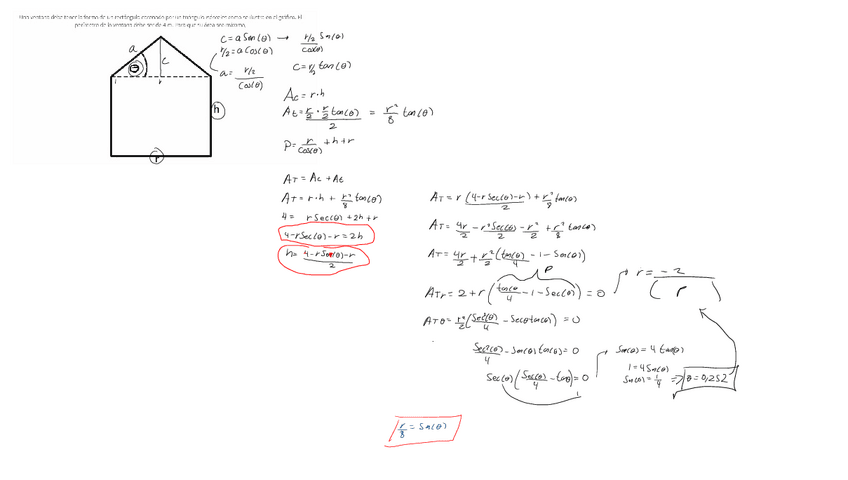 Una ventana debe tener la forma de un rectángulo coronado por un triángulo isósceles como se ilustra en el gráfico. El
perímetro de la ventana debe ser de 4 m. para que su área sea máxima.
a
Θ
c
r
h
r
c = a Sen(θ) → r/2 Sen(θ) / cos(θ)
r/2 = a Cos(θ)
a = r/2 / Cos(θ)
c = r/2 tan(θ)
Ac = r·h
At = r/2 · r/2 tan(θ) / 2 = r²/8 tan(θ)
P = r / cos(θ) + h + r
AT = Ac + At
AT = r·h + r²/8 tan(θ)
4 = r Sec(θ) + 2h + r
4 - r Sec(θ) - r = 2h
h = 4 - r Sen(θ) - r / 2
AT = r (4 - r Sec(θ) - r) / 2 + r²/8 tan(θ)
AT = 4r/2 - r² Sec(θ)/2 - r²/2 + r²/8 tan(θ)
AT = 4r/2 + r²/2 (tan(θ)/4 - 1 - Sec(θ))
P
ATr = 2 + r (tan(θ)/4 - 1 - Sec(θ)) = 0
r = -2 / ( r )
ATθ = r²/2 (Sec²(θ)/4 - Secθ tan(θ)) = 0
Sec²(θ)/4 - Sec(θ) tan(θ) = 0
Sec(θ) (Sec(θ)/4 - tanθ) = 0
Sec(θ) = 4 tan(θ)
1 = 4 Sen(θ)
Sen(θ) = 1/4 ⇒ θ = 0,252
r/8 = Sen(θ)